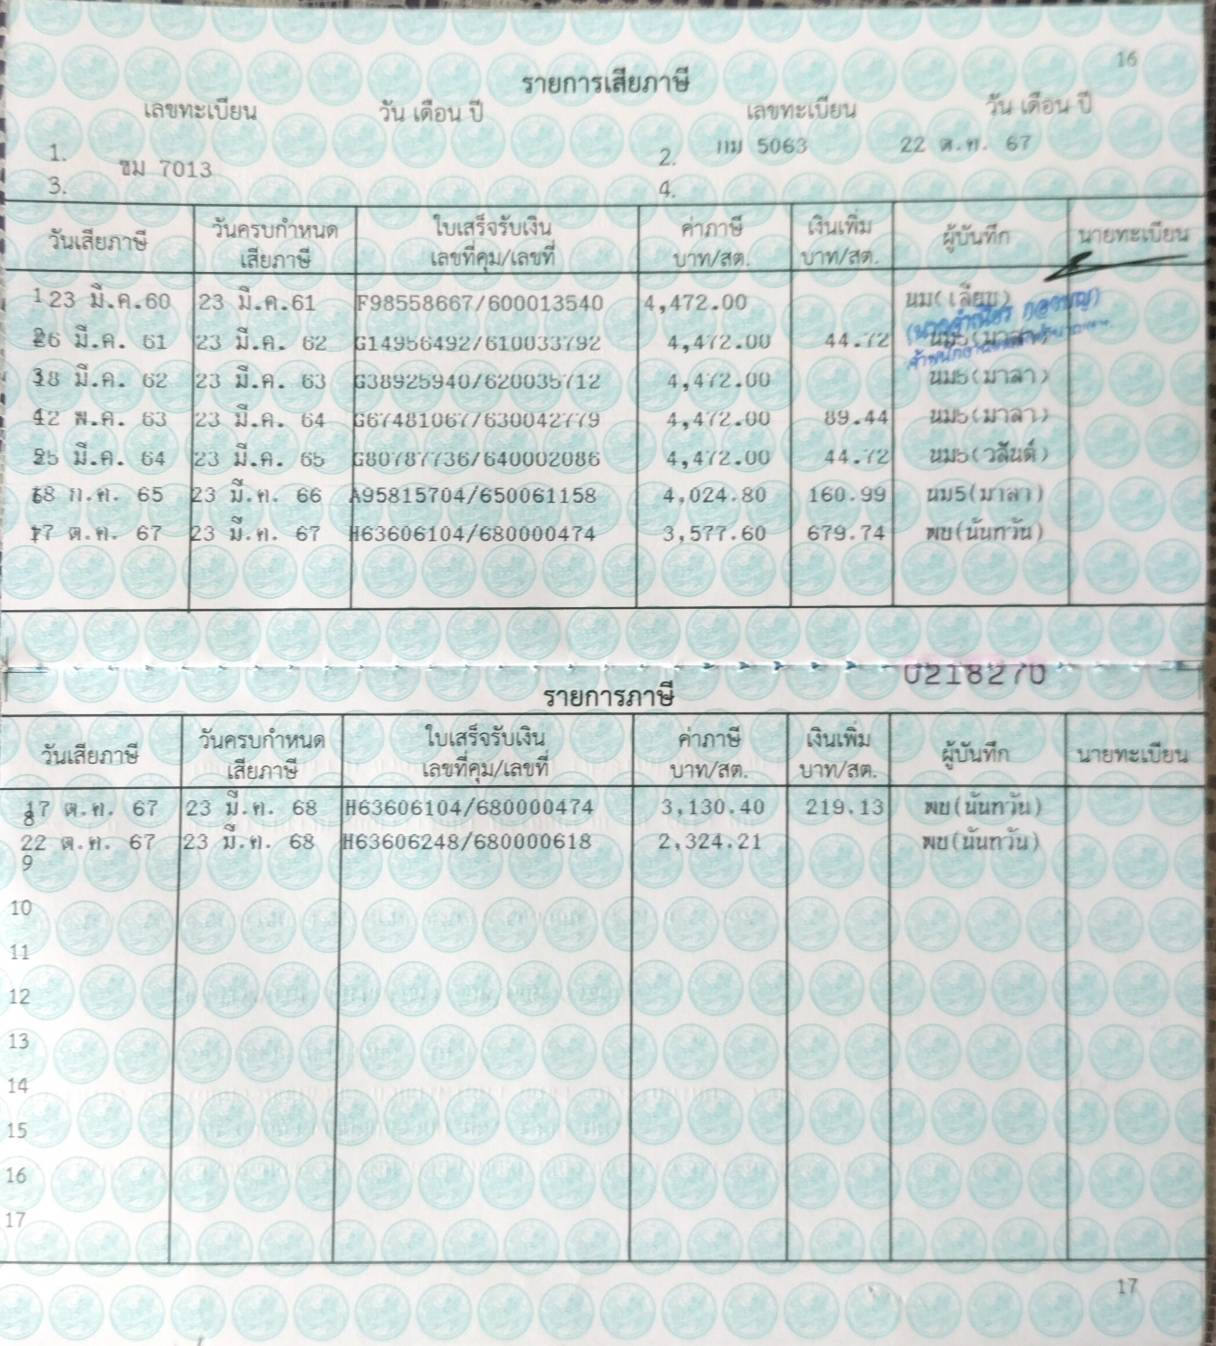 16
รายการเสียภาษี
เลขทะเบียน วัน เดือน ปี เลขทะเบียน วัน เดือน ปี
1. ขม 7013 2. กม 5063 22 ต.ค. 67
3. 4.
วันเสียภาษี วันครบกำหนดเสียภาษี ใบเสร็จรับเงิน เลขที่คุม/เลขที่ ค่าภาษี บาท/สต. เงินเพิ่ม บาท/สต. ผู้บันทึก นายทะเบียน
1 23 มี.ค.60 23 มี.ค.61 F98558667/600013540 4,472.00 นม(เลียบ)
26 มี.ค. 61 23 มี.ค. 62 G14956492/610033792 4,472.00 44.72 นม5(มาลา)
18 มี.ค. 62 23 มี.ค. 63 G38925940/620035712 4,472.00 นม5(มาลา)
12 พ.ค. 63 23 มี.ค. 64 G67481067/630042779 4,472.00 89.44 นม5(มาลา)
25 มี.ค. 64 23 มี.ค. 65 G80787736/640002086 4,472.00 44.72 นม5(วสันต์)
18 ก.ค. 65 23 มี.ค. 66 A95815704/650061158 4,024.80 160.99 นม5(มาลา)
17 ต.ค. 67 23 มี.ค. 67 H63606104/680000474 3,577.60 679.74 พย(นันทวัน)
0218270
รายการภาษี
วันเสียภาษี วันครบกำหนดเสียภาษี ใบเสร็จรับเงิน เลขที่คุม/เลขที่ ค่าภาษี บาท/สต. เงินเพิ่ม บาท/สต. ผู้บันทึก นายทะเบียน
8 17 ต.ค. 67 23 มี.ค. 68 H63606104/680000474 3,130.40 219.13 พย(นันทวัน)
22 ต.ค. 67 23 มี.ค. 68 H63606248/680000618 2,324.21 พย(นันทวัน)
9
10
11
12
13
14
15
16
17
17